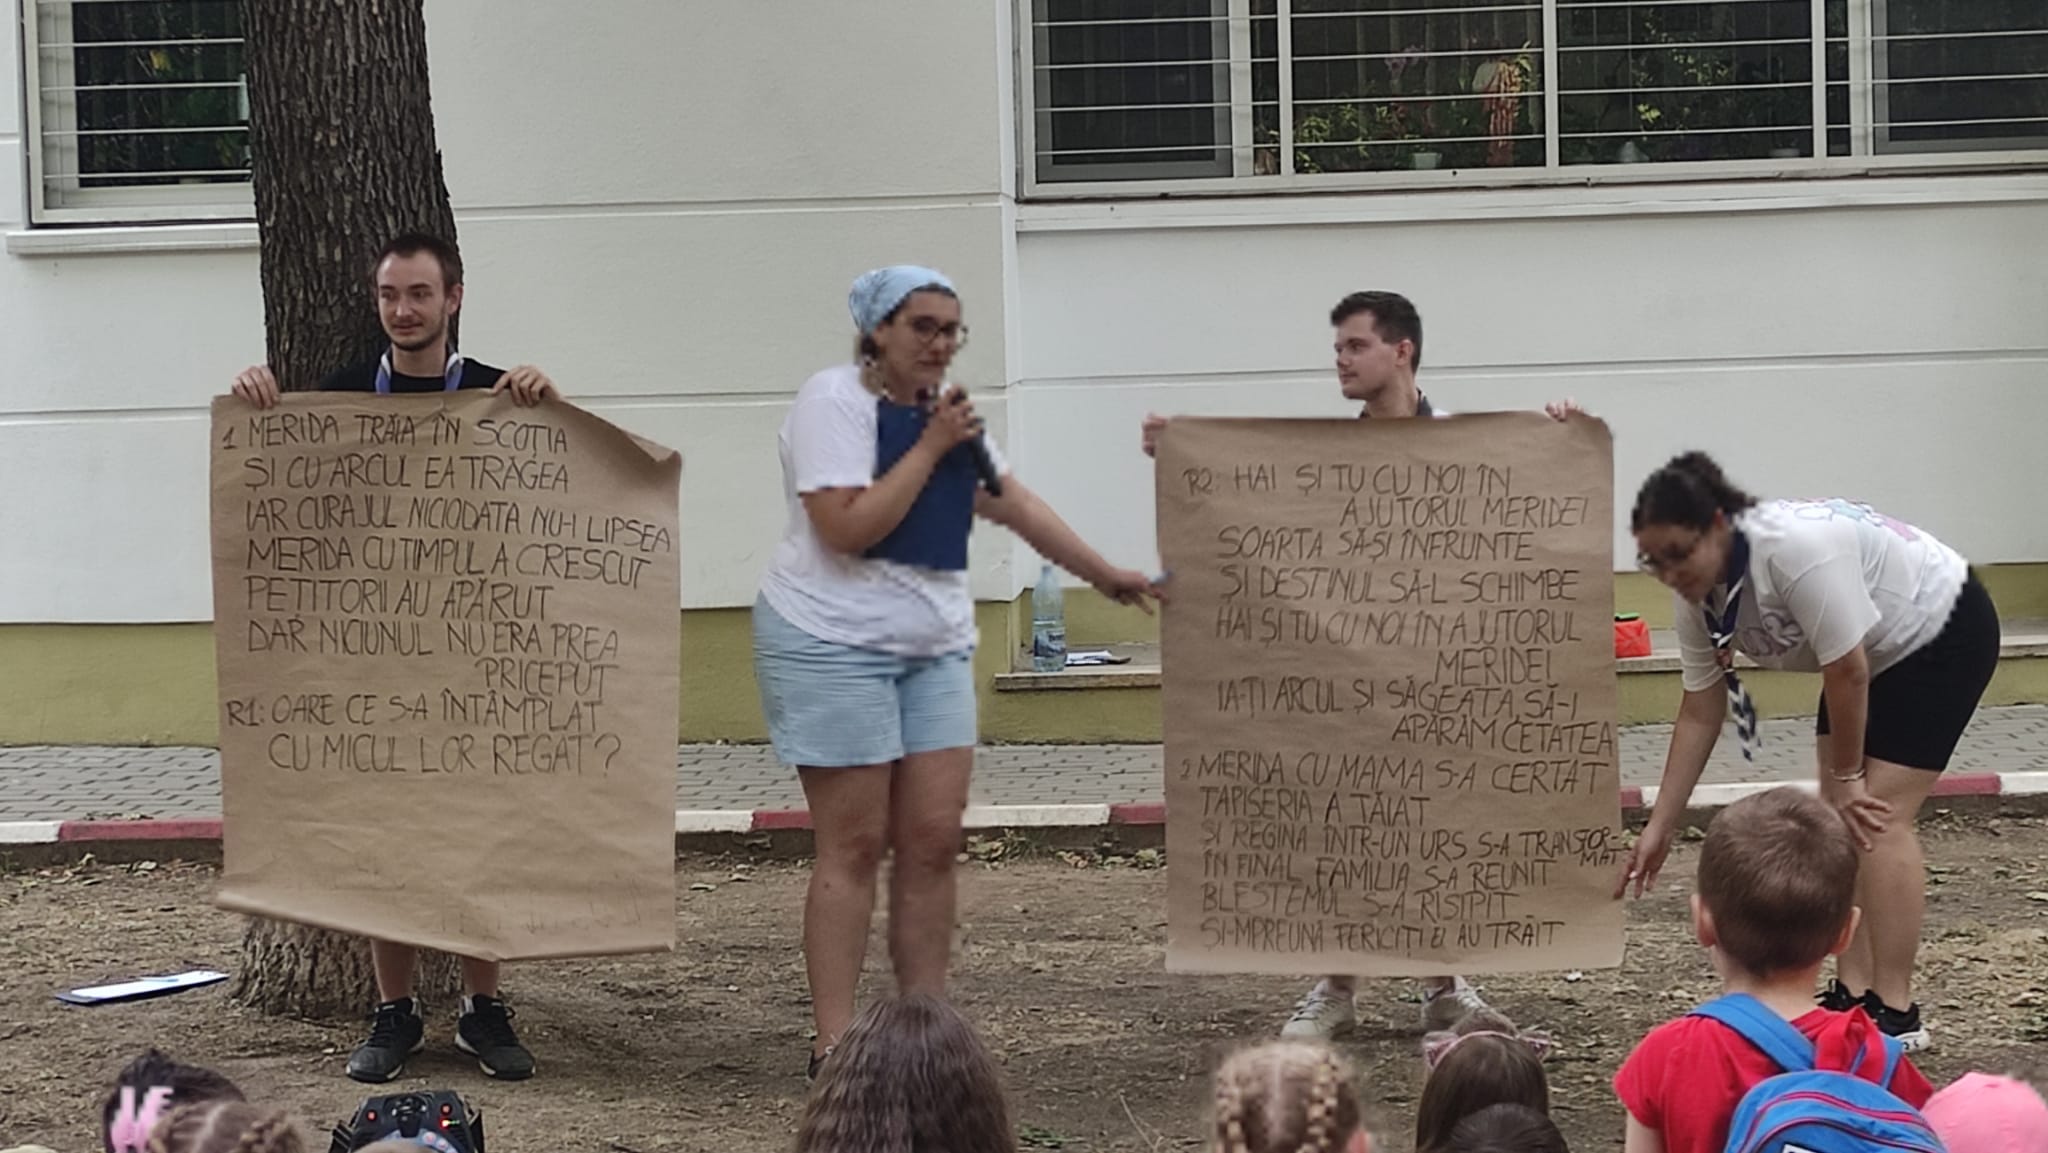 1 MERIDA TRĂIA ÎN SCOȚIA
ȘI CU ARCUL EA TRĂGEA
IAR CURAJUL NICIODATA NU-I LIPSEA
MERIDA CU TIMPUL A CRESCUT
PEȚITORII AU APĂRUT
DAR NICIUNUL NU ERA PREA
PRICEPUT
R1: OARE CE S-A ÎNTÂMPLAT
CU MICUL LOR REGAT?
R2: HAI ȘI TU CU NOI ÎN
AJUTORUL MERIDEI
SOARTA SĂ-ȘI ÎNFRUNTE
ȘI DESTINUL SĂ-L SCHIMBE
HAI ȘI TU CU NOI ÎN AJUTORUL
MERIDEI
IA-ȚI ARCUL ȘI SĂGEATA, SĂ-I
APĂRĂM CETATEA
2 MERIDA CU MAMA S-A CERTAT
TAPISERIA A TĂIAT
ȘI REGINA ÎNTR-UN URS S-A TRANSFOR-
MAT
ÎN FINAL FAMILIA S-A REUNIT
BLESTEMUL S-A RISIPIT
ȘI-MPREUNĂ FERICIȚI EI AU TRĂIT